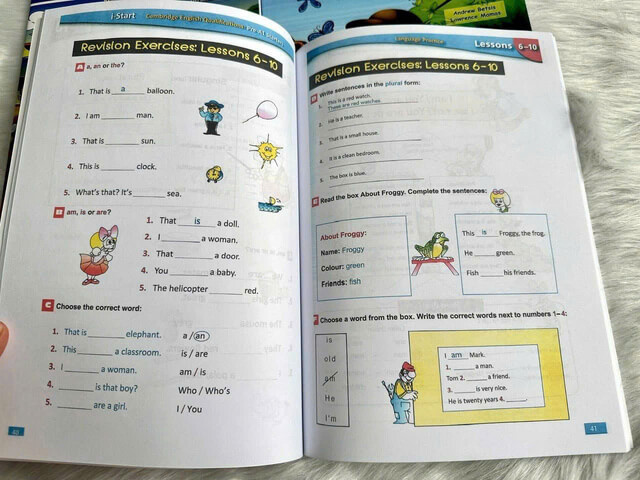 i-Start Cambridge English Qualifications: Pre A1 Starters
Revision Exercises: Lessons 6–10
A a, an or the?
1. That is a balloon.
2. I am ______ man.
3. That is ______ sun.
4. This is ______ clock.
5. What's that? It's ______ sea.
B am, is or are?
1. That is a doll.
2. I ______ a woman.
3. That ______ a door.
4. You ______ a baby.
5. The helicopter ______ red.
C Choose the correct word:
1. That is ______ elephant. a / an
2. This ______ a classroom. is / are
3. I ______ a woman. am / is
4. ______ is that boy? Who / Who's
5. ______ are a girl. I / You
40
Andrew Betsis
Lawrence Mamas
Language Practice Lessons 6–10
Revision Exercises: Lessons 6–10
Write sentences in the plural form:
1. This is a red watch.
These are red watches.
2. He is a teacher.
3. That is a small house.
4. It is a clean bedroom.
5. The box is blue.
E Read the box About Froggy. Complete the sentences:
About Froggy:
Name: Froggy
Colour: green
Friends: fish
This is Froggy, the frog.
He ______ green.
Fish ______ his friends.
F Choose a word from the box. Write the correct words next to numbers 1–4:
is
old
am
He
i'm
I am Mark.
1. ______ a man.
Tom 2. ______ a friend.
3. ______ is very nice.
He is twenty years 4. ______.
41